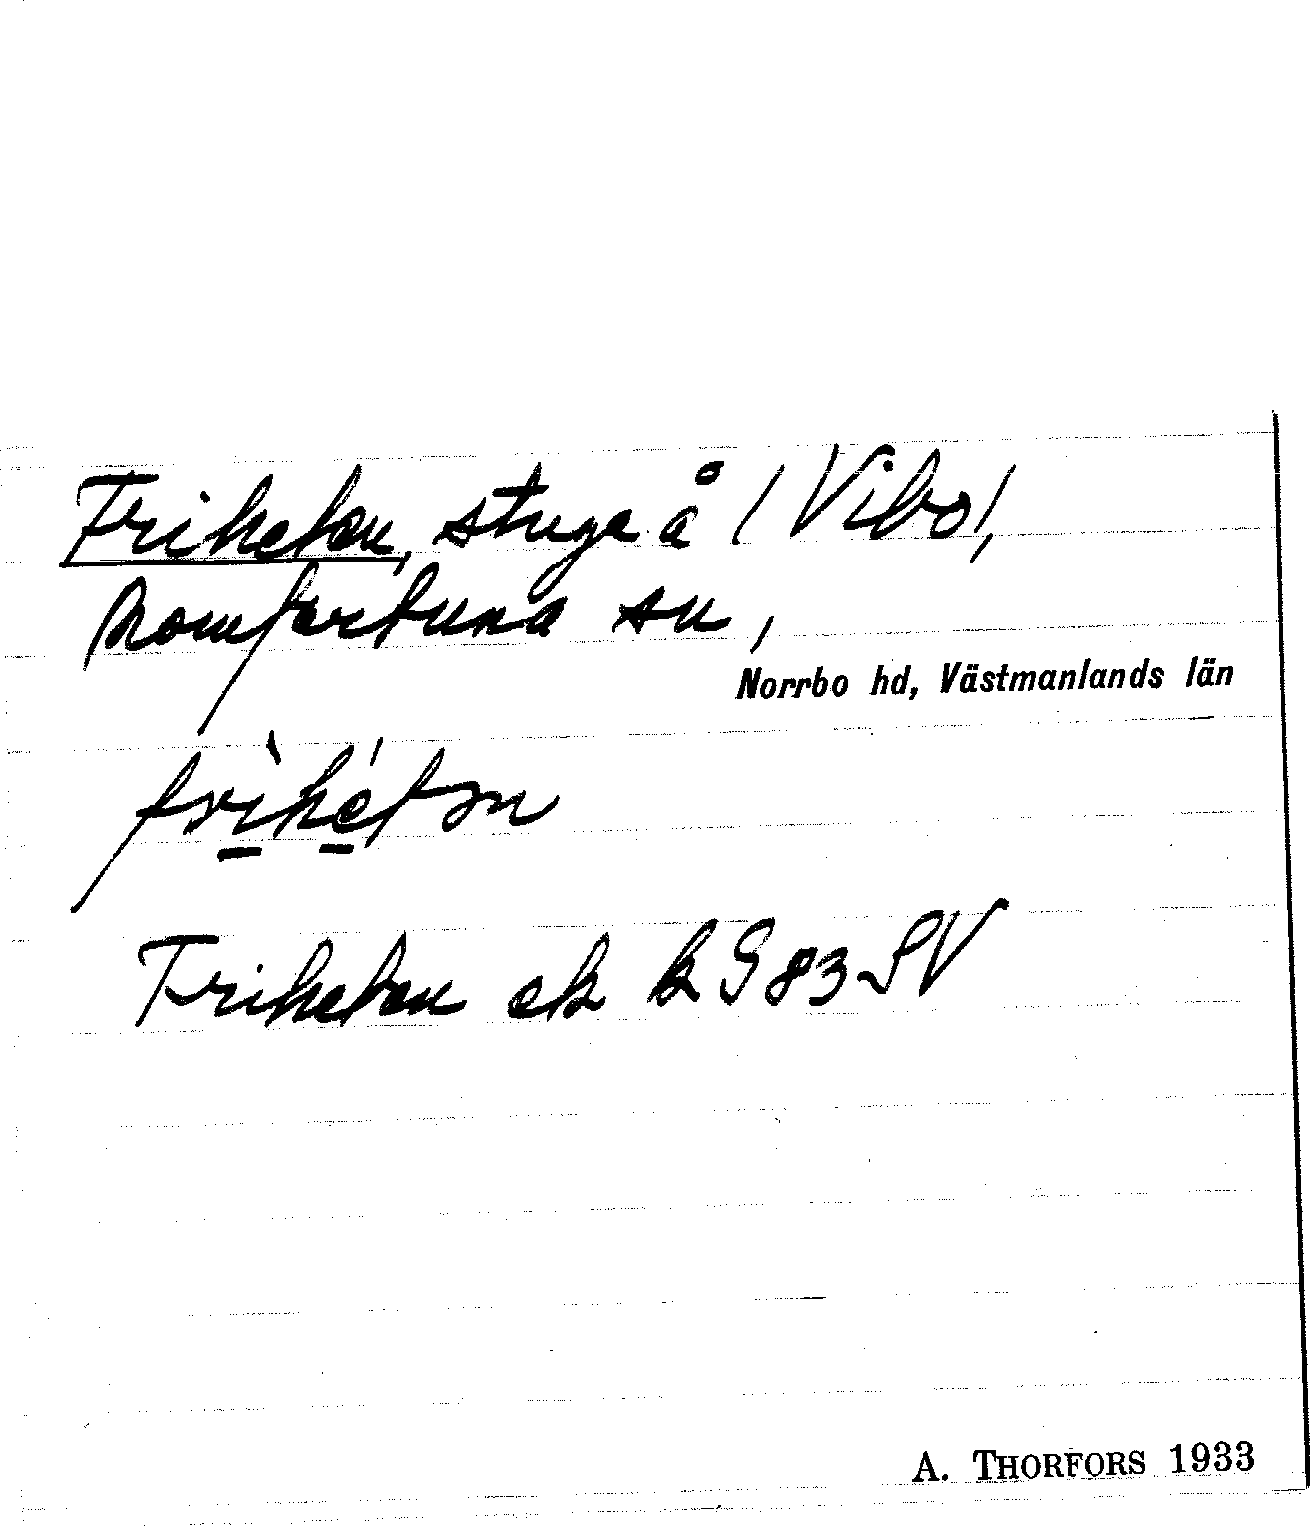 Friheten, stuga å /Vibo/,
Romfartuna sn,
Norrbo hd, Västmanlands län
frìhétən
Friheten ek k G 83 SV
A. THORFORS 1933